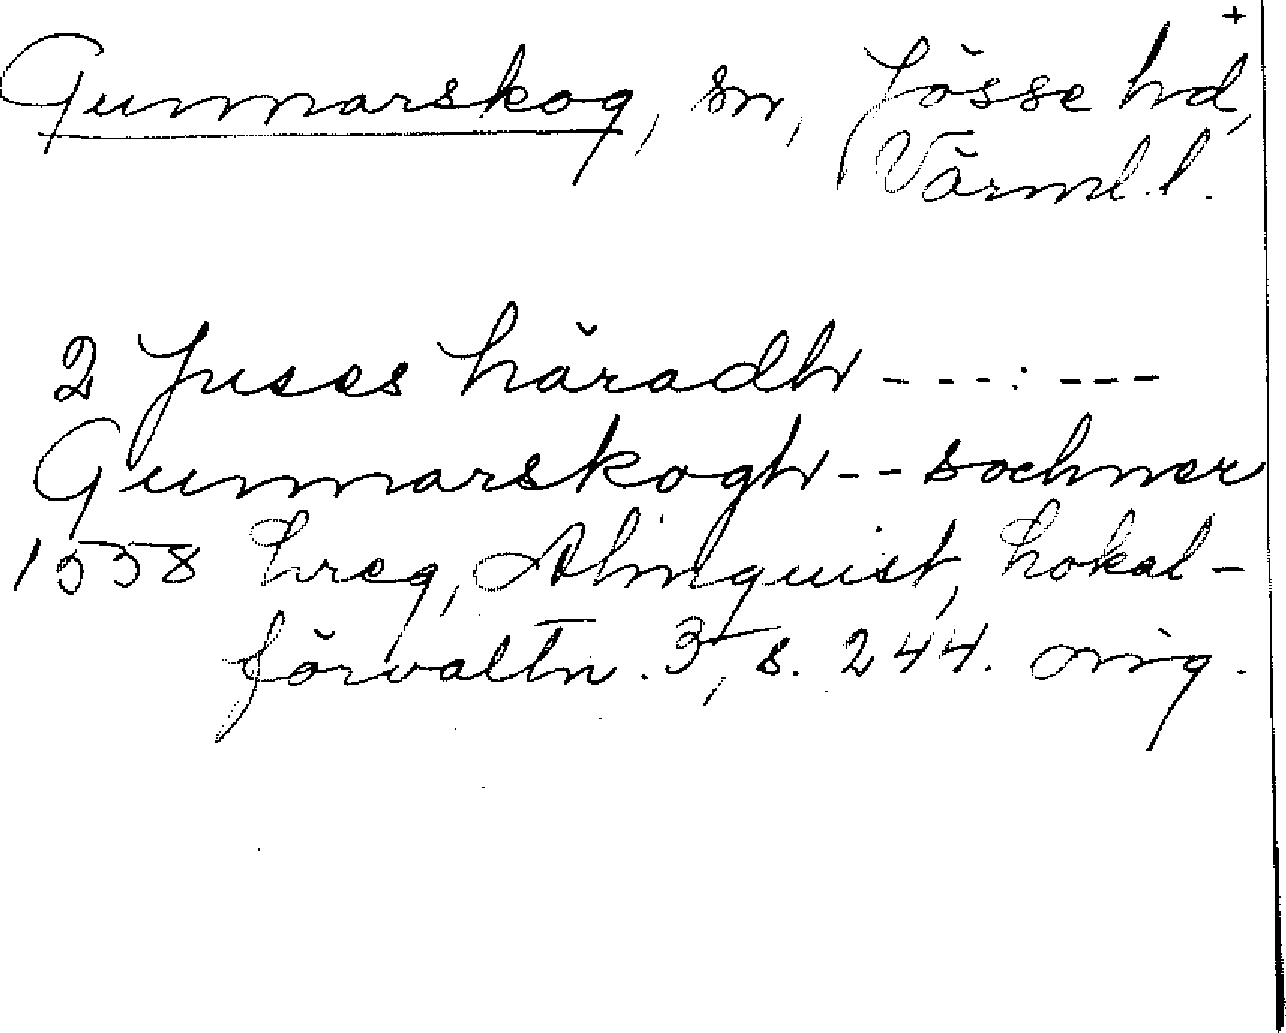 +
Gunnarskog, sn, Jösse hd,
Värml. l.
2 Juses häradh ---:---
Gunnarskogh -- sochner
1558 Lreg, Almquist, Lokal-
förvaltn. 3, s. 244. orig.